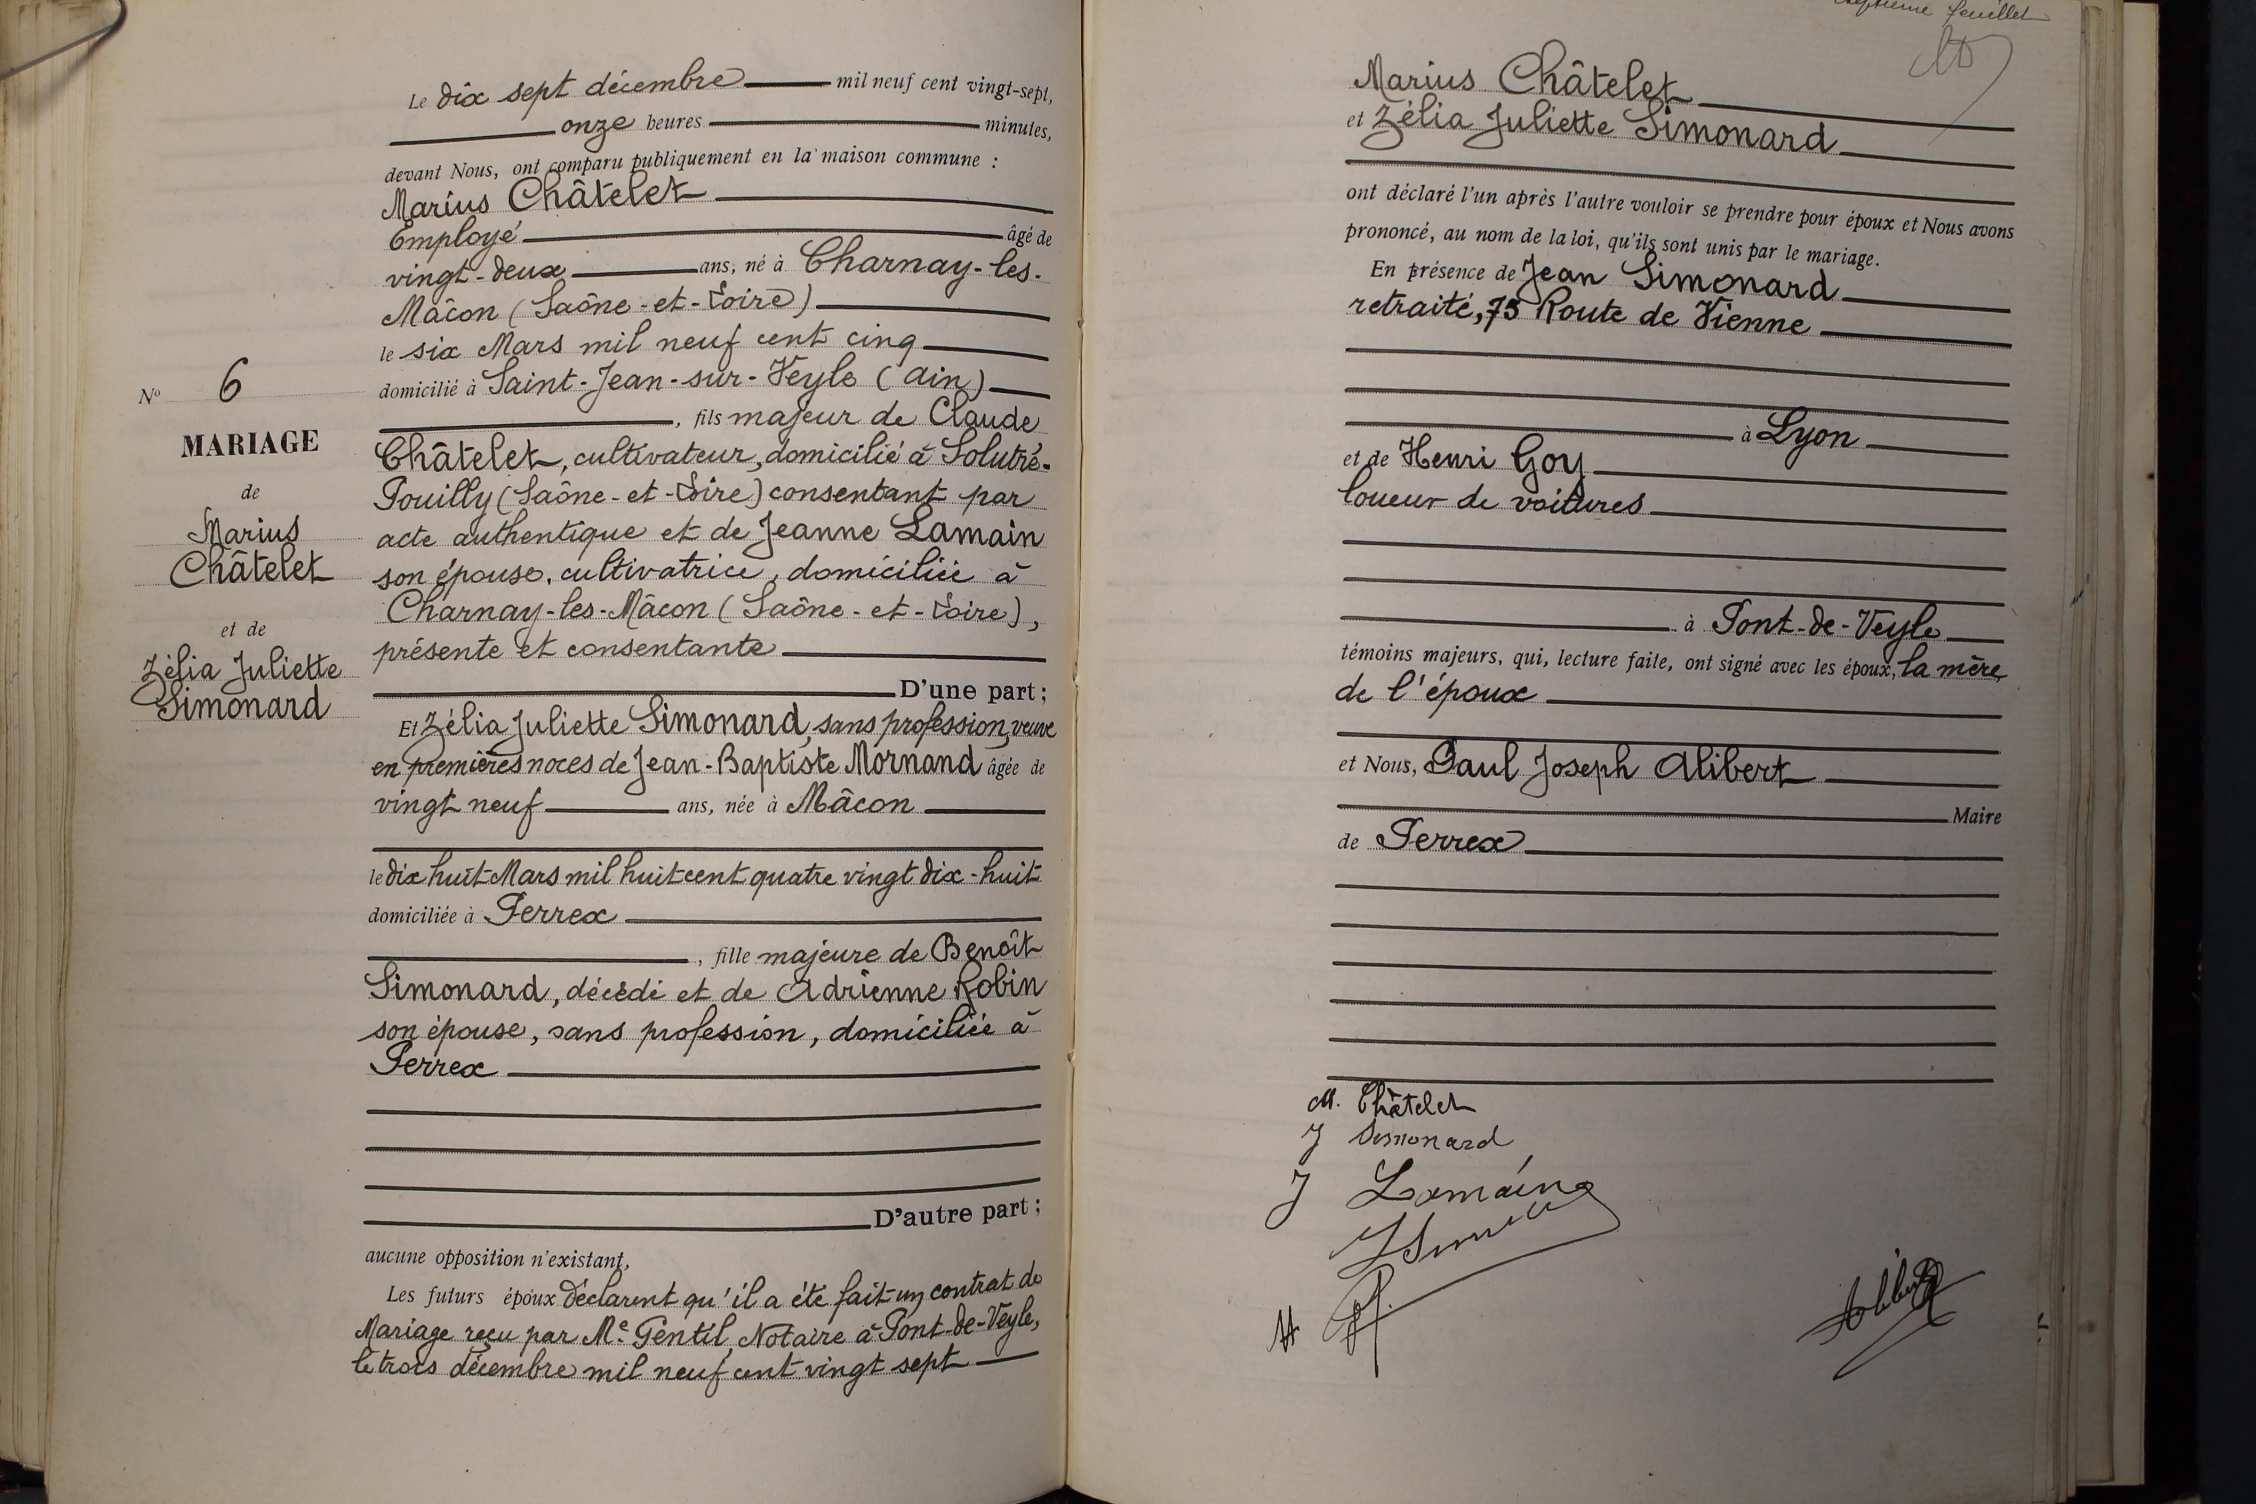 Le dix sept décembre mil neuf cent vingt-sept,
onze heures minutes,
devant Nous, ont comparu publiquement en la maison commune :
Marius Châtelet
Employé âgé de
vingt-deux ans, né à Charnay-les-
Mâcon (Saône-et-Loire)
le six Mars mil neuf cent cinq
domicilié à Saint-Jean-sur-Veyle (Ain)
, fils majeur de Claude
Châtelet, cultivateur, domicilié à Solutré-
Pouilly (Saône-et-Loire) consentant par
acte authentique et de Jeanne Lamain
son épouse, cultivatrice, domiciliée à
Charnay-les-Mâcon (Saône-et-Loire),
présente et consentante
D'une part ;
Et Zélia Juliette Simonard, sans profession, veuve
en premières noces de Jean-Baptiste Mornand âgée de
vingt neuf ans, née à Mâcon
le dix huit Mars mil huit cent quatre vingt dix-huit
domiciliée à Perrex
, fille majeure de Benoît
Simonard, décédé et de Adrienne Robin
son épouse, sans profession, domiciliée à
Perrex
D'autre part ;
aucune opposition n'existant,
Les futurs époux déclarent qu'il a été fait un contrat de
Mariage reçu par Me Gentil, Notaire à Pont-de-Veyle,
le trois décembre mil neuf cent vingt sept
No 6
MARIAGE
de
Marius
Châtelet
et de
Zélia Juliette
Simonard
feuillet
Marius Châtelet
et Zélia Juliette Simonard
ont déclaré l'un après l'autre vouloir se prendre pour époux et Nous avons
prononcé, au nom de la loi, qu'ils sont unis par le mariage.
En présence de Jean Simonard
retraité, 73 Route de Vienne
à Lyon
et de Henri Goy
loueur de voitures
à Pont-de-Veyle
témoins majeurs, qui, lecture faite, ont signé avec les époux, la mère
de l'époux
et Nous, Paul Joseph Alibert
Maire
de Perrex
M. Châtelet
J Simonard
J Lamain
Alibert